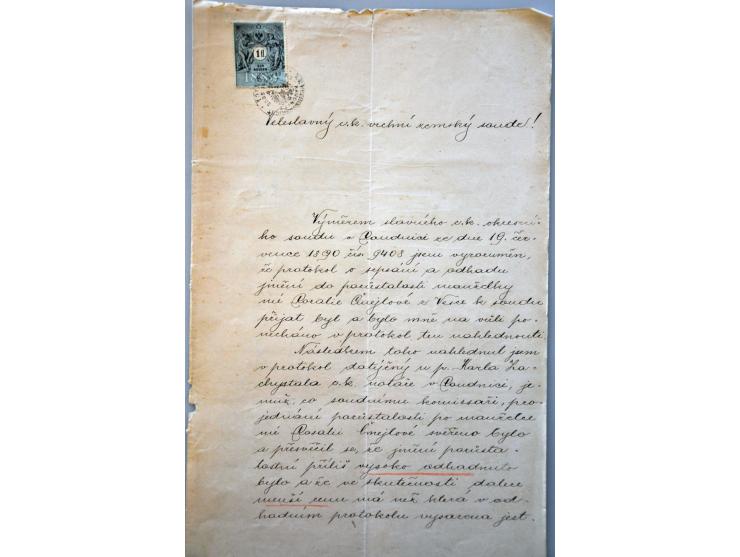 10
1888
Veleslavný c.k. vrchní zemský soude!
Výměrem slavného c.k. okresní-
ho soudu v Roudnici ze dne 19. čer-
vence 1890 čís. 9408 jsem vyrozuměn,
že protokol o sepsání a odhadu
jmění do pozůstalosti manželky
mé Rosalie Čmejlové z Vesce k soudu
přijat byl a bylo mně na vůli po-
necháno v protokol ten nahlednouti.
Následkem toho nahlednul jsem
v protokol dotýčný u p. Karla Za-
chystala c.k. notáře v Roudnici, je-
muž co soudnímu komisaři, pro-
jednání pozůstalosti po manželce
mé Rosalii Čmejlové svěřeno bylo
a přesvěčil se, že jmění pozůsta-
lostní příliš vysoko odhadnuto
bylo a že ve skutečnosti daleko
menší cenu má než která v od-
hadním protokolu vyřčena jest.